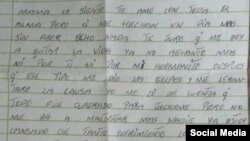 MAMA LO SIENTO TE AMO CON TODA EL
ALMA PERO SI ME HECHAN UN DIA MAS
SIN ABER ECHO NADA TE JURO Q ME HOY
A QUITAR LA VIDA YA NO AGUANTO MAS
NI POR TI NI POR MI HERMANITO DESPUES
Q ESE TIPO ME DIO LOS GOLPES Y ME LEBAN
TARE LA CAUSA NO ME DI DE CUENTA Q
TODO FUE CUADRADO PARA JODERME PERO NO
ME BA A MALTRATAR MAS NADIE YA ESTOY
CANSADO DE TANTO SUFRIMIENTO
Social Media